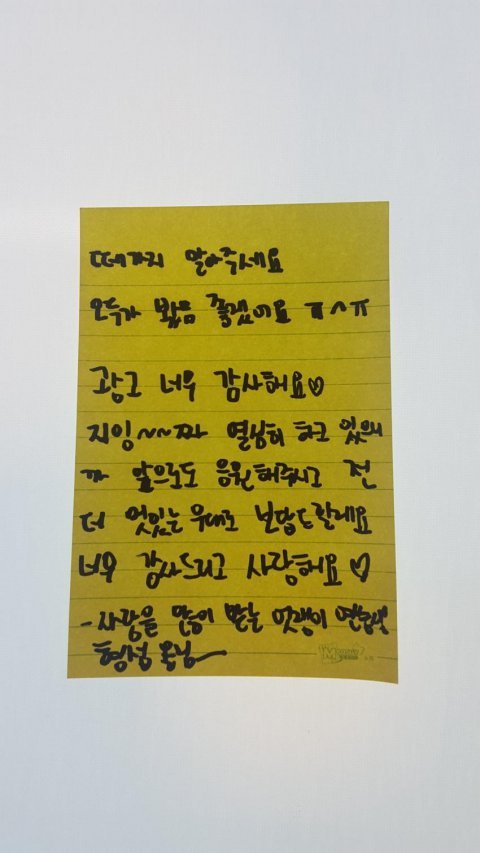 떼가지 말아주세요
모두가 봤음 좋겠어요 ㅠㅅㅠ
광고 너무 감사해요♡
지잉~~짜 열심히 하고 있으니
까 앞으로도 응원해주시고 전
더 멋있는 무대로 보답드릴게요
너무 감사드리고 사랑해요♡
-사랑을 많이 받는
형성